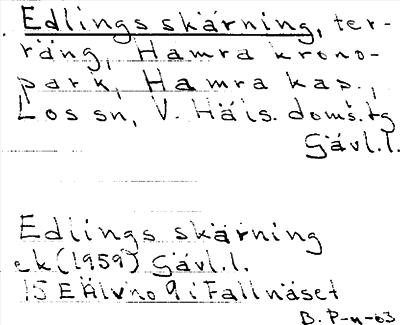 Edlings skärning, ter-
räng, Hamra krono-
park, Hamra kap.,
Los sn, V. Häls. doms.tg
Gävl.l.
Edlings skärning
ek (1959) Gävl.l.
15 E Älvho 9 i Fallnäset
B. P-n-63